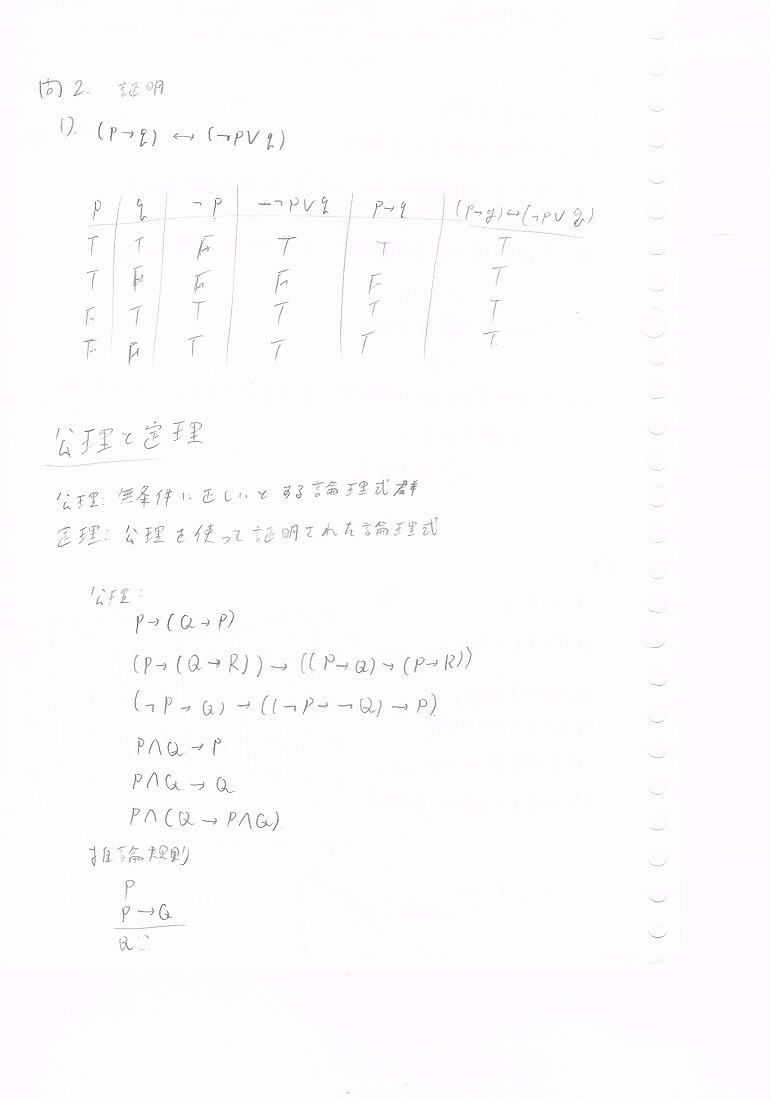 問2. 証明
1). (P→q) ↔ (¬P∨q)
P q ¬P ¬P∨q P→q (P→q)↔(¬P∨q)
T T F T T T
T F F F F T
F T T T T T
F F T T T T
公理と定理
公理: 無条件に正しいとする論理式群
定理: 公理を使って証明された論理式
公理:
P→(Q→P)
(P→(Q→R))→((P→Q)→(P→R))
(¬P→Q)→((¬P→¬Q)→P)
P∧Q→P
P∧Q→Q
P∧(Q→P∧Q)
推論規則
P
P→Q
Q∴